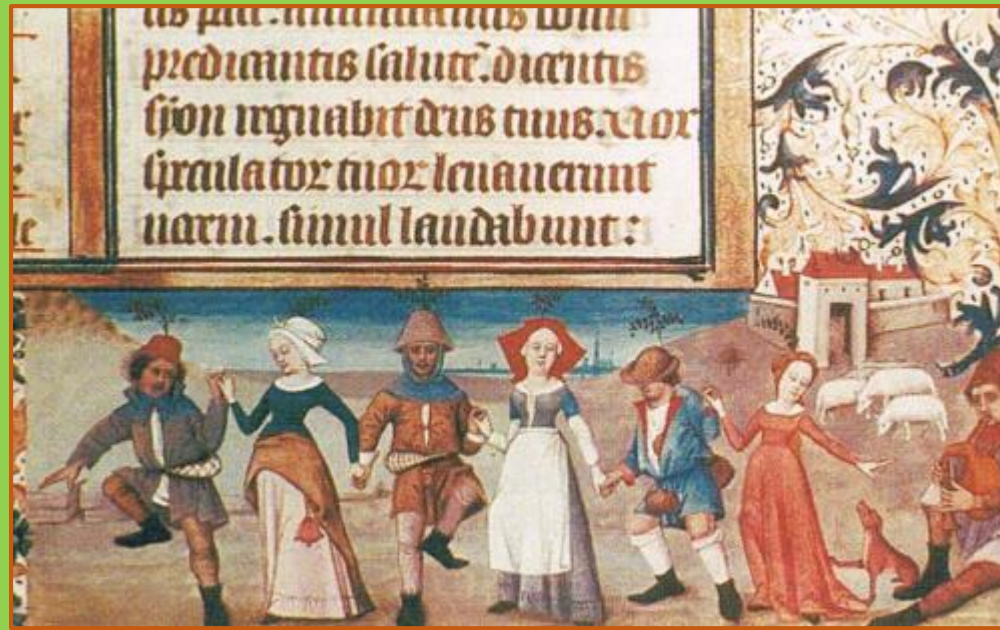 predicantis salutē. dicentis
syon regnabit deus tuus. Vox
speculatorz tuorz leuauerunt
uocem. simul laudabunt:
le